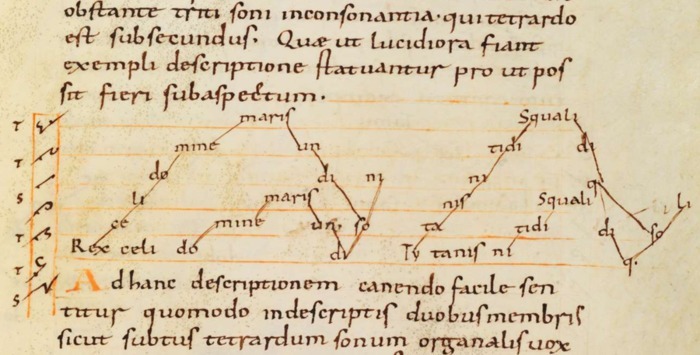 obstante triti soni inconsonantia. qui tetrardo
est subsecundus. Quæ ut lucidiora fiant
exempli descriptione statuantur pro ut pos
sit fieri subaspectum.
T maris Squali
mine un tidi di
T do di ni ni q
S li maris nis Squali li
T ce mine un so ta tidi di so
Rex celi do di Ty tanis ni q.
T
S
Ad hanc descriptionem canendo facile sen
titur quomodo indescriptis duobus membris
sicut subtus tetrardum sonum organalis uox